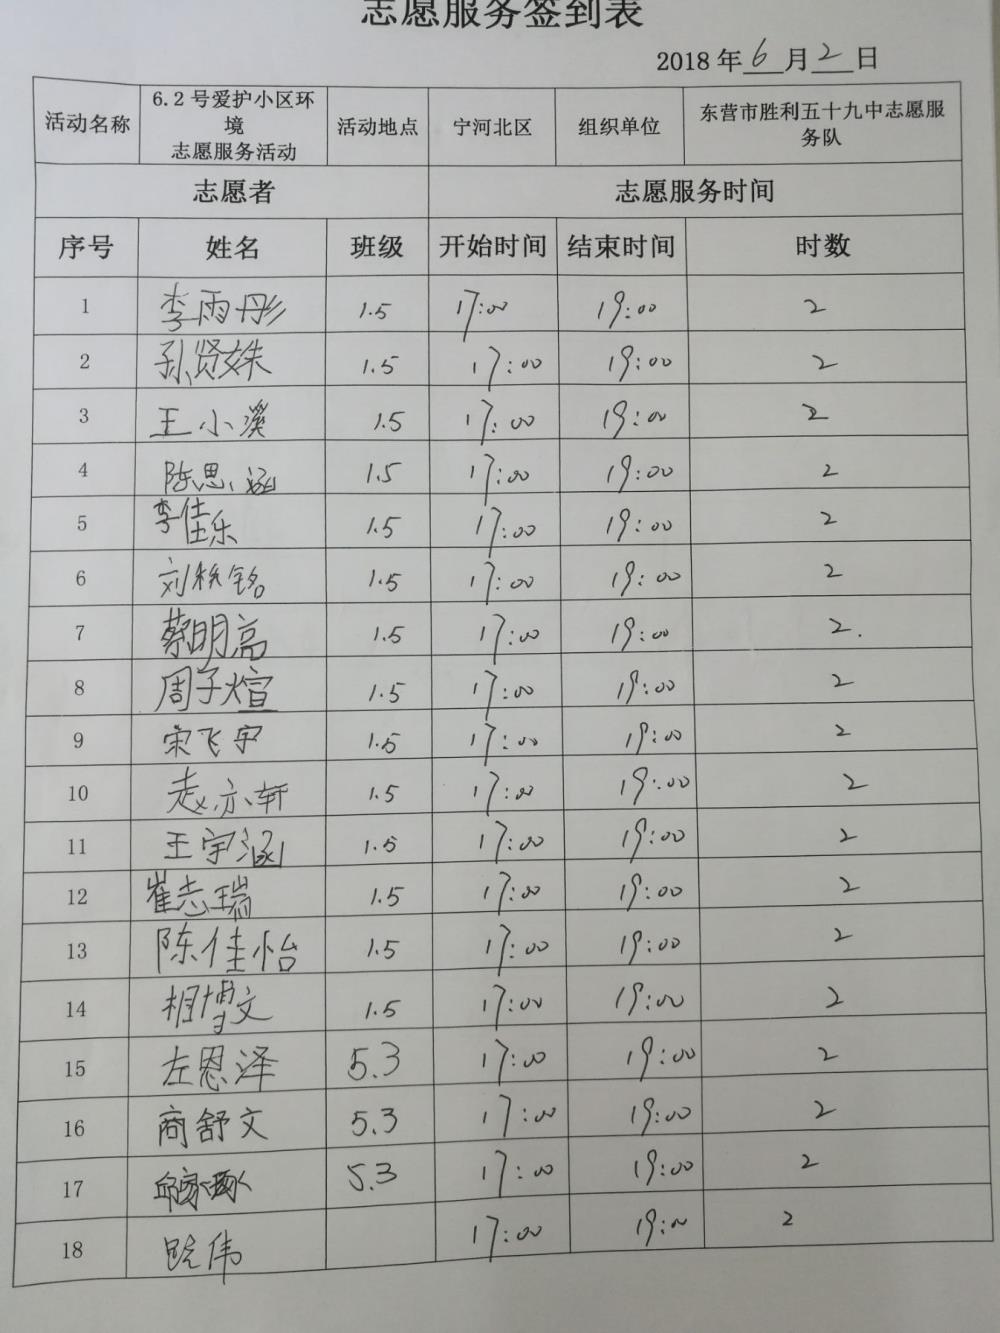 志愿服务签到表
2018年6月2日
活动名称 6.2号爱护小区环境志愿服务活动 活动地点 宁河北区 组织单位 东营市胜利五十九中志愿服务队
志愿者 志愿服务时间
序号 姓名 班级 开始时间 结束时间 时数
1 李雨彤 1.5 17:00 19:00 2
2 孙贤姝 1.5 17:00 19:00 2
3 王小溪 1.5 17:00 19:00 2
4 陈思涵 1.5 17:00 19:00 2
5 李佳乐 1.5 17:00 19:00 2
6 刘 铭 1.5 17:00 19:00 2
7 蔡明高 1.5 17:00 19:00 2.
8 周子煊 1.5 17:00 19:00 2
9 宋飞宇 1.5 17:00 19:00 2
10 赵亦轩 1.5 17:00 19:00 2
11 王宇涵 1.5 17:00 19:00 2
12 崔志瑞 1.5 17:00 19:00 2
13 陈佳怡 1.5 17:00 19:00 2
14 相博文 1.5 17:00 19:00 2
15 左恩泽 5.3 17:00 19:00 2
16 商舒文 5.3 17:00 19:00 2
17 5.3 17:00 19:00 2
18 伟 17:00 19:00 2